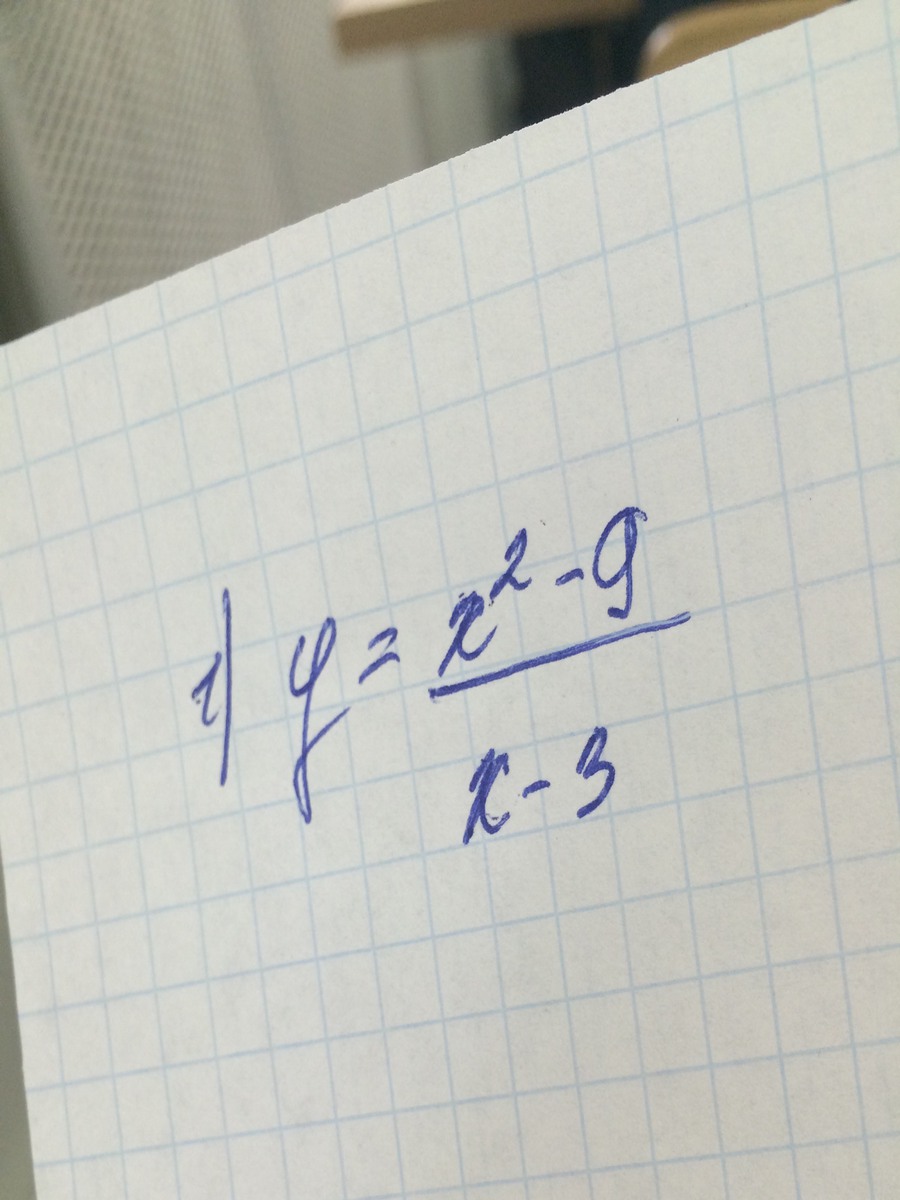 1) y = x² - 9
x - 3